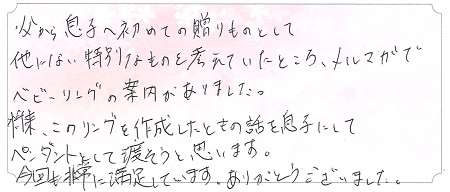 父から息子へ初めての贈りものとして
他にはない特別なものを考えていたところ、メルマガで
ベビーリングの案内がありました。
将来、このリングを作成したときの話を息子にして
ペンダントとして渡そうと思います。
今回も非常に満足しています。ありがとうございました。